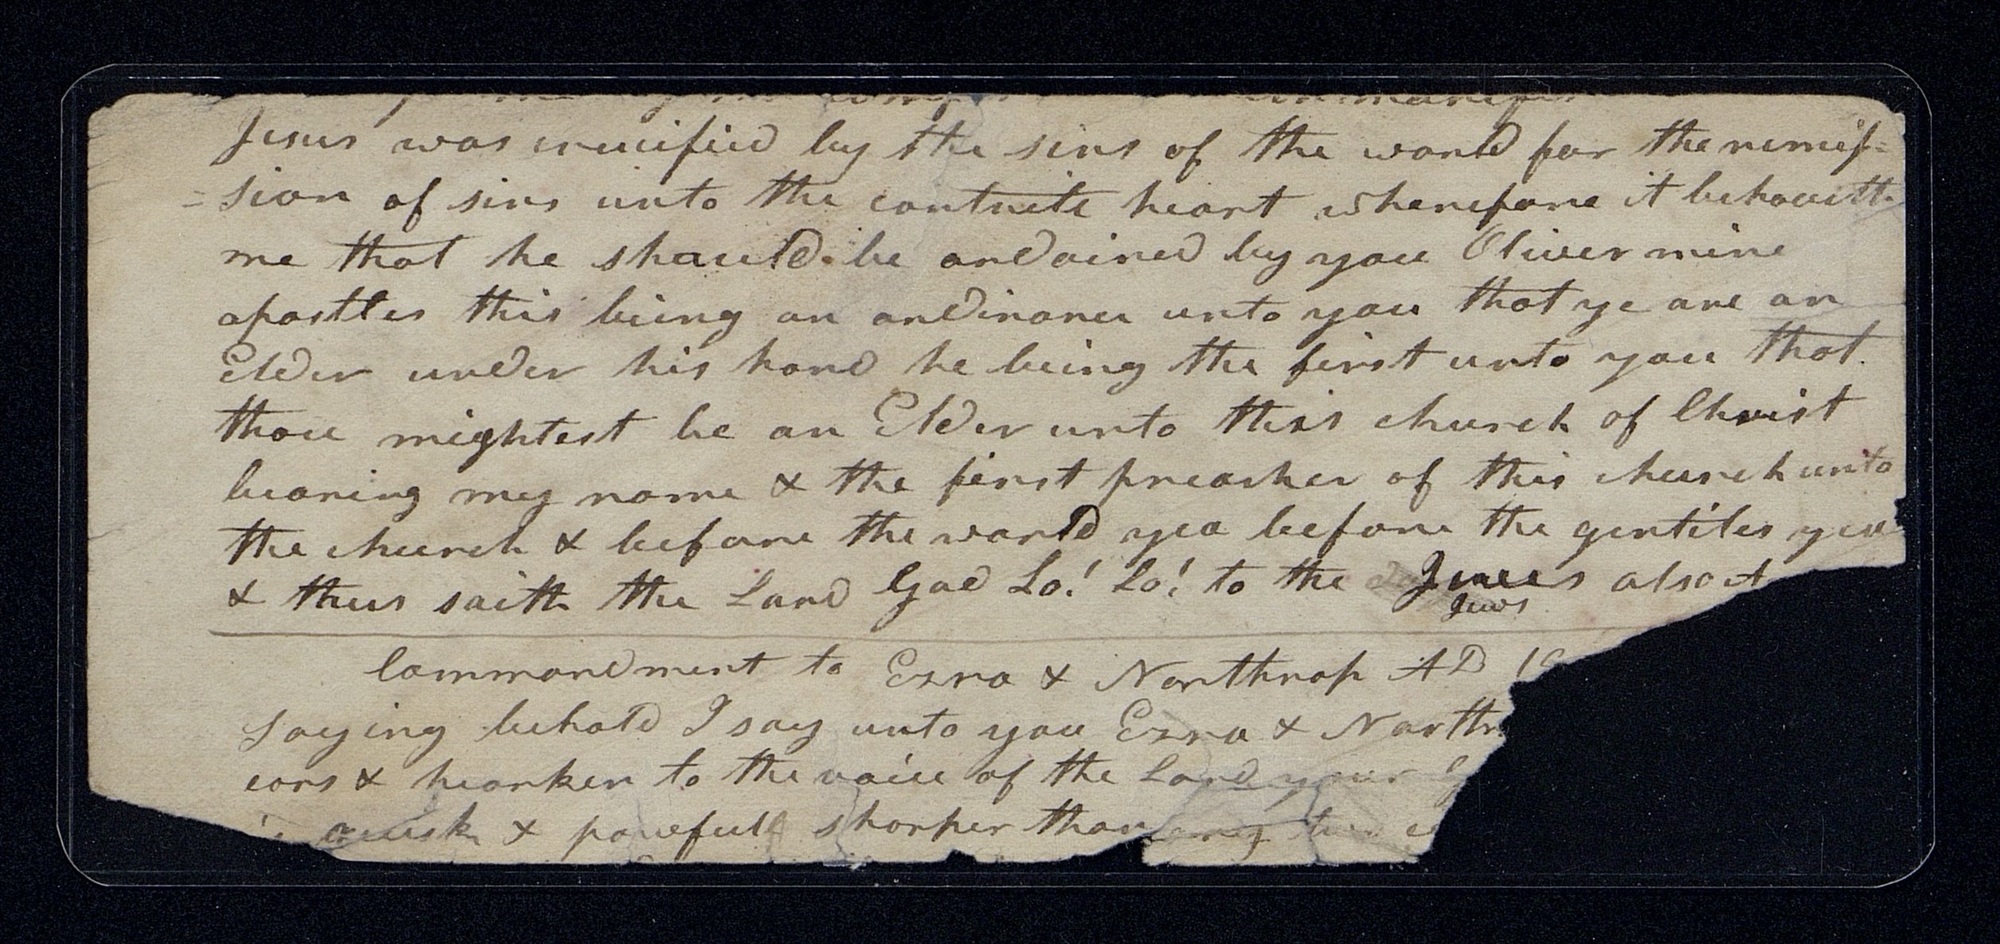 Jesus was crucified by the sins of the world for the remis=
=sion of sins unto the contrite heart wherefore it behoveth
me that he should be ordained by you Oliver mine
apostles this being an ordinance unto you that ye are an
Elder under his hand he being the first unto you that
thou mightest be an Elder unto this church of Christ
bearing my name & the first preacher of this church unto
the church & before the world yea before the gentiles yea
& thus saith the Lord God Lo! Lo! to the Jews also A
Jews
Commandment to Ezra & Northrop AD 1
saying behold I say unto you Ezra & North
ears & hearken to the voice of the Lord your G
quick & powefull sharper than any two e